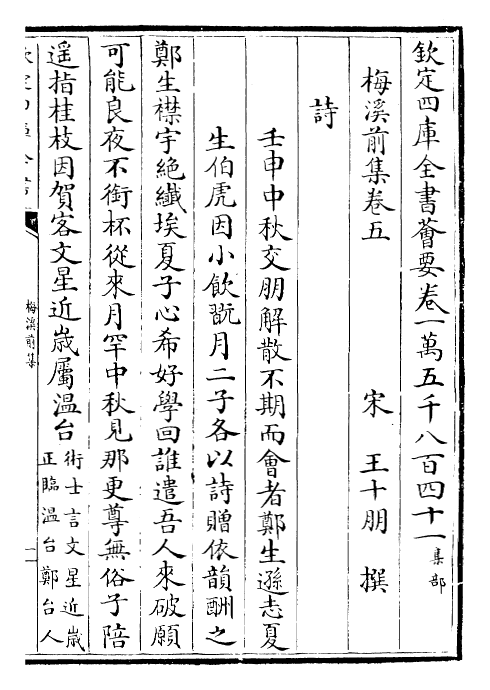 欽定四庫全書薈要卷一萬五千八百四十一集部
梅溪前集卷五
宋 王十朋 撰
詩
壬申中秋交朋解散不期而會者鄭生遜志夏
生伯虎因小飲翫月二子各以詩贈依韻酬之
鄭生襟宇絶纖埃夏子心希好學回誰遣吾人來破願
可能良夜不銜杯從來月罕中秋見那更尊無俗子陪
遥指桂枝因賀客文星近歲屬温台術士言文星近歲
正臨温台鄭台人
梅溪前集
一